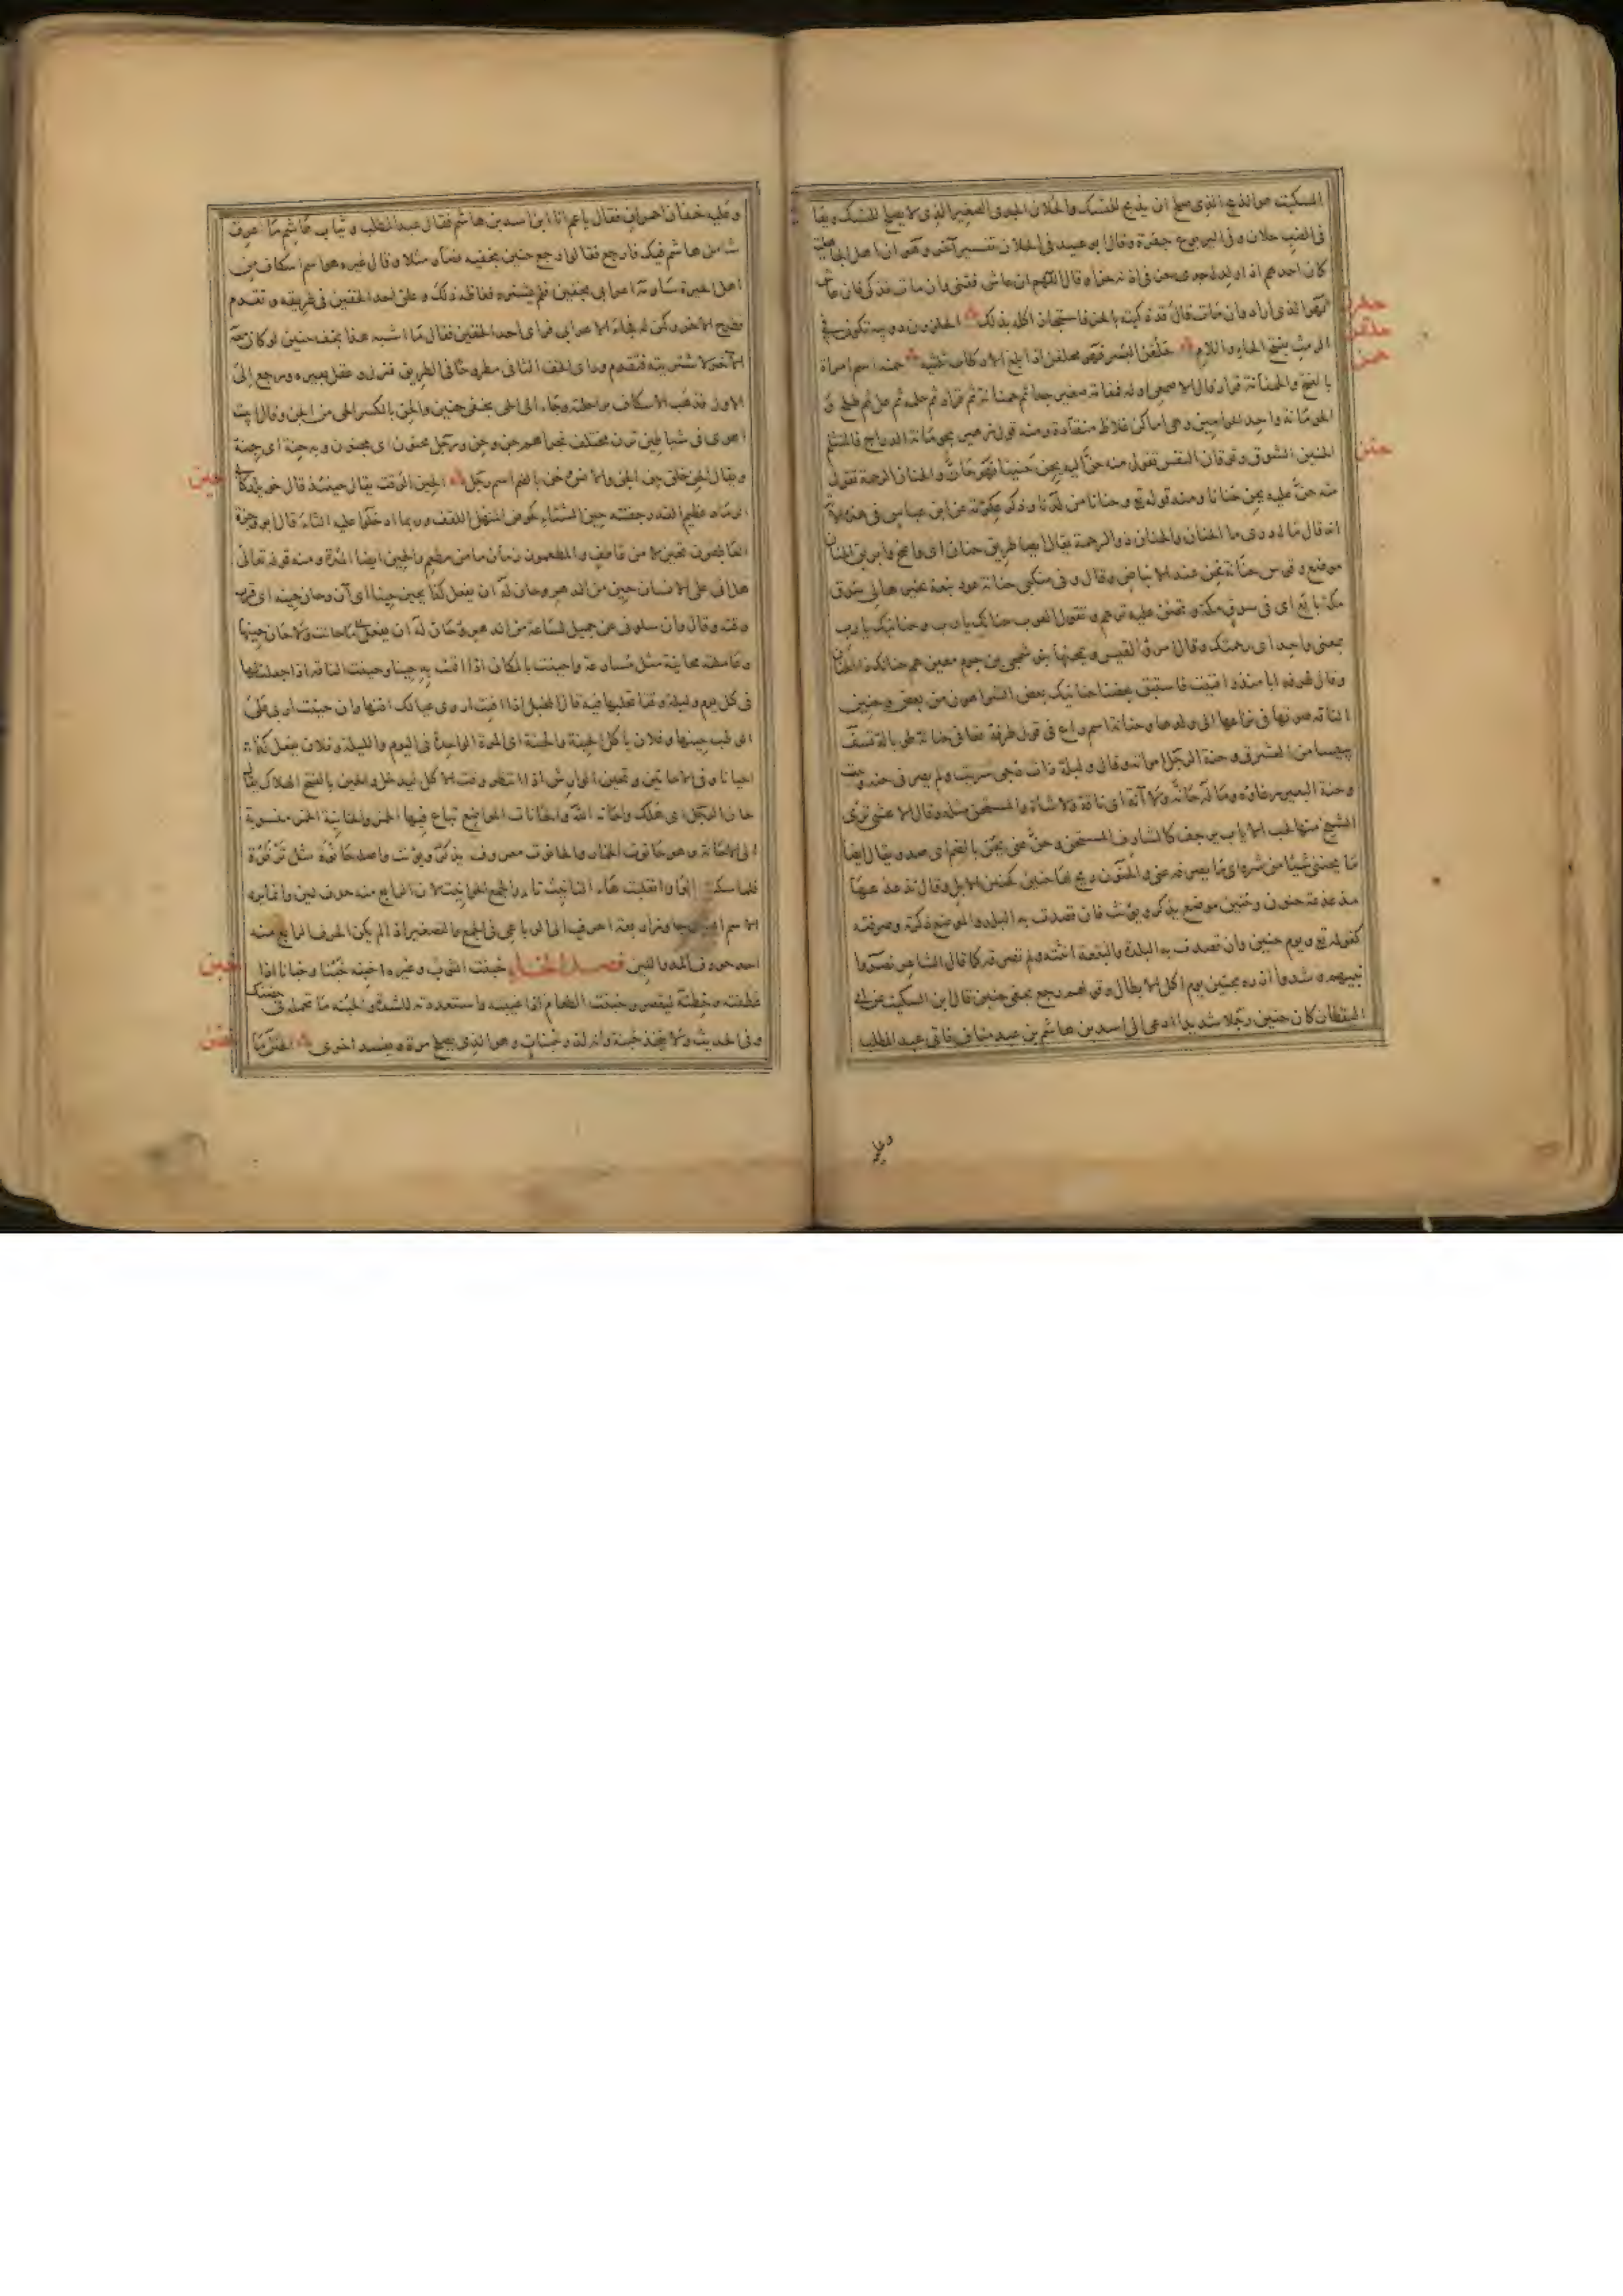 السكيت هو الذي صلح ان يذبح للنسك والحلان الجدي الصغير الذي لا يصلح للنسك ويقال
في الضب حلان وفي اليربوع جفرة وقال ابو عبيد في الحلان تفسير آخر وهو ان اهل الجاهلية
كان احدهم اذا ولد له جدي حز في اذنه حزا وقال اللهم ان عاش فقني وان مات فذكي فان عاش
فهو الذي اراد وان مات قال قد ذكيته بالحز فاستجاز اكله بذلك الحلزون دويبة تكون في
الرمث بفتح الحاء واللام حلقن البسر فهو محلقن اذا بلغ الارطاب ثلثيه حمنة اسم امراة
بالفتح والحمنانة قراد قال الاصمعي اوله قمقامة صغير جدا ثم حمنانة ثم قراد ثم حلمة ثم عل ثم طلح و
الحومانة واحد الحوامين وهي اماكن غلاظ منقادة ومنه قول زهير بحومانة الدراج فالمتثلم
الحنين الشوق وتوقان النفس تقول منه حن اليه يحن حنينا فهو حان والحنان الرحمة تقول
منه حن عليه يحن حنانا ومنه قوله تع وحنانا من لدنا وذكر عكرمة عن ابن عباس في هذه الآية
انه قال ما ادري ما الحنان والحنان ذو الرحمة يقال ايضا طريق حنان اي واضح وابرق الحنان
موضع وقوس حنانة تحن عند الانباض وقال وفي منكبي حنانة عود نبعة تخيرها لي سوق
مكة بائع اي في سوق مكة وتحنن عليه ترحم وتقول العرب حنانك يا رب وحنانيك يا رب
بمعنى واحد اي رحمتك وقال امرؤ القيس ويمنحها بنو شمجى بن جرم معيزهم حنانك ذا الحنان
وقال طرفة ابا منذر افنيت فاستبق بعضنا حنانيك بعض الشر اهون من بعض وحنين
الناقة صوتها في نزاعها الى ولدها وحنانة اسم راع في قول طرفة نعاني حنانة طوبالة تسف
يبيسا من العشرق وحنة الرجل امراته وقال وليلة ذات دجى سريت ولم يصرني حنة وبيت
وحنة البعير رغاؤه وما له حانة ولا آنة اي ناقة ولا شاة والمستحن مثله وقال الاعشى ترى
الشيخ منها لحب الاياب يرجف كالشارف المستحن وحن عني يحن بالضم اي صد ويقال ايضا
ما يحنني شيئا من شره اي ما يصرفه عني والحنون ريح لها حنين كحنين الابل وقال تذعذعها
مذعذعة حنون وحنين موضع يذكر ويؤنث فان قصدت به البلد والموضع ذكرته وصرفته
كقوله تع ويوم حنين وان قصدت به البلدة والبقعة انثته ولم تصرفه كما قال الشاعر نصروا
نبيهم وشدوا ازره بحنين يوم تواكل الابطال وقولهم رجع بخفي حنين قال ابن السكيت عن ابي
اليقظان كان حنين رجلا شديدا ادعى الى اسد بن هاشم بن عبد مناف فاتى عبد المطلب
حلزن
حلقن
حمن
حنن
وعليه
وعليه خفان احمران فقال يا عم انا ابن اسد بن هاشم فقال عبد المطلب لا وثياب هاشم ما اعرف
شمائل هاشم فيك فارجع فقالوا رجع حنين بخفيه فصار مثلا وقال غيره هو اسم اسكاف من
اهل الحيرة ساومه اعرابي بخفين فلم يشتره فغاظه ذلك وعلق احد الخفين في طريقه وتقدم
وطرح الآخر وكمن له فجاء الاعرابي فراى احد الخفين فقال ما اشبه هذا بخف حنين لو كان معه
الآخر لاشتريته فتقدم وراى الخف الثاني مطروحا في الطريق فنزل وعقل بعيره ورجع الى
الاول فذهب الاسكاف براحلته وجاء الى الحي بخفي حنين والحن بالكسر الحي من الجن وقال ابيت
اهوي في شياطين ترن مختلف نجواهم حن وجن ورجل محنون اي مجنون وبه حنة اي جنة
ويقال الحن خلق بين الجن والانس وحن بالضم اسم رجل الحين الوقت يقال حينئذ قال خويلد كابي
الرماد عظيم القدر جفنته حين الشتاء كحوض المنهل اللقف وربما ادخلوا عليه التاء قال ابو وجزة
العاطفون تحين ما من عاطف والمطعمون زمان ما من مطعم والحين ايضا المدة ومنه قوله تعالى
هل اتى على الانسان حين من الدهر وحان له ان يفعل كذا يحين حينا اي آن وحان حينه اي قرب
وقته وقال وان سلوي عن جميل لساعة من الدهر ما حانت ولا حان حينها
وعاملته محاينة مثل مساوعة واحينت بالمكان اذا اقمت به حينا وحينت الناقة اذا جعلت لها
في كل يوم وليلة وقتا تحلبها فيه قال المخبل اذا افنت اروى عيالك افنها وان حينت اربى على
الوطب حينها وفلان يأكل الحينة والحينة اي المرة الواحدة في اليوم والليلة وفلان يفعل كذا
احيانا وفي الاحايين وتحين الوارش اذا انتظر وقت الاكل ليدخل والحين بالفتح الهلاك يقال
حان الرجل اي هلك واحانه الله والحانات المواضع تباع فيها الخمر والحانية الخمر منسوبة
الى الحانة وهو حانوت الخمار والحانوت معروف يذكر ويؤنث واصله حانوة مثل ترقوة
فلما سكنت الواو انقلبت هاء التانيث تاء والجمع الحوانيت لان الرابع منه حرف لين وانما يرد
الاسم الذي جاوز اربعة احرف الى الرباعي في الجمع والتصغير اذا لم يكن الحرف الرابع منه
احد حروف المد واللين فصل الخاء خبنت الثوب وغيره اخبنه خبنا وخبانا اذا
عطفته وخطته ليقصر وخبنت الطعام اذا غيبته واستعددته للشدة والخبنة ما تحمله في حضنك
وفي الحديث ولا يتخذ خبنة وانه لذو خبنات وهو الذي يصلح مرة ويفسد اخرى
حين
خبن
ختن